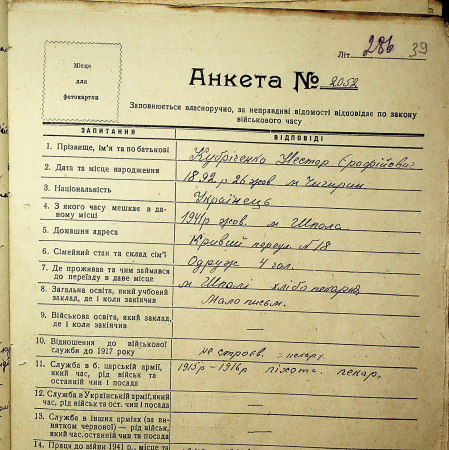 Літ. 286 39
Місце
для
фотокартки
Анкета № 2052
Заповнюється власноручно, за неправдиві відомості відповідає по закону
військового часу
ЗАПИТАННЯ
ВІДПОВІДІ
1. Прізвище, ім'я та по батькові
Кубріченко Нестор Єрофійович
2. Дата та місце народження
1892 р 26 жов. м Чигирин.
3. Національність
Українець
4. З якого часу мешкає в да-
ному місці
1941 р жов. м Шпола
5. Домашня адреса
Кривий переул. N 18
6. Сімейний стан та склад сім'ї
Одруж 4 чол.
7. Де проживав та чим займався
до переїзду в дане місце
м Шполі хлібо пекарня
8. Загальна освіта, який учбовий
заклад, де і коли закінчив
Мало письм.
9. Військова освіта, який заклад,
де і коли закінчив
—
10. Відношення до військової
служби до 1917 року
не строєв. пекарь
11. Служба в б. царській армії,
який час, рід військ та
останній чин і посада
1915 р – 1916 р піхота. пекар.
12. Служба в Українській армії, який
час, рід військ та ост. чин і посада
—
13. Служба в інших арміях (за ви-
нятком червоної) — рід військ,
який час, останній чин та посада
—
14. Праця до війни 1941 р., місце та